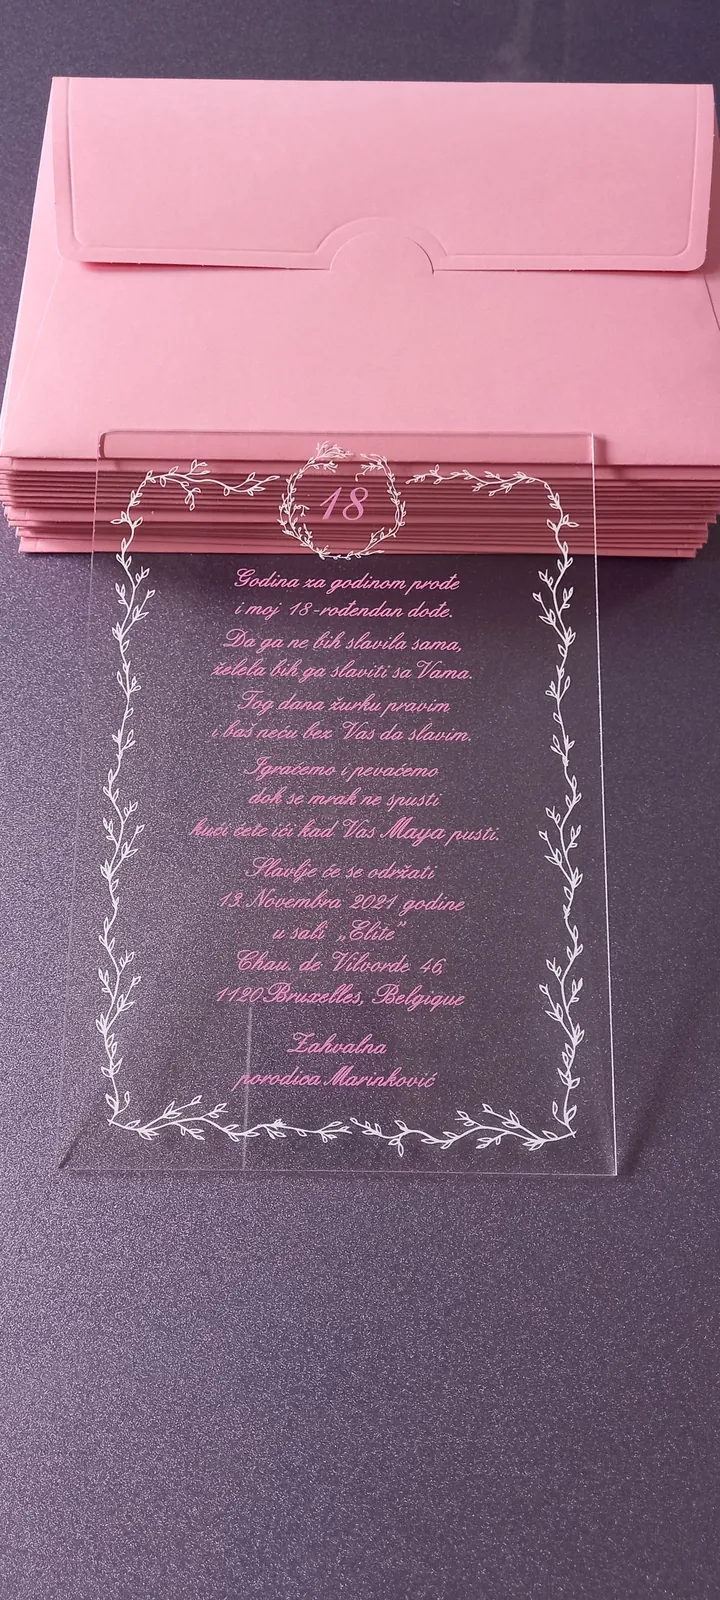 18
Godina za godinom prođe
i moj 18-rođendan dođe.
Da ga ne bih slavila sama,
želela bih ga slaviti sa Vama.
Tog dana žurku pravim
i baš neću bez Vas da slavim.
Igraćemo i pevaćemo
dok se mrak ne spusti
kući ćete ići kad Vas Maya pusti.
Slavlje će se održati
13. Novembra 2021 godine
u sali „Elite”
Chau. de Vilvorde 46,
1120 Bruxelles, Belgique
Zahvalna
porodica Marinković